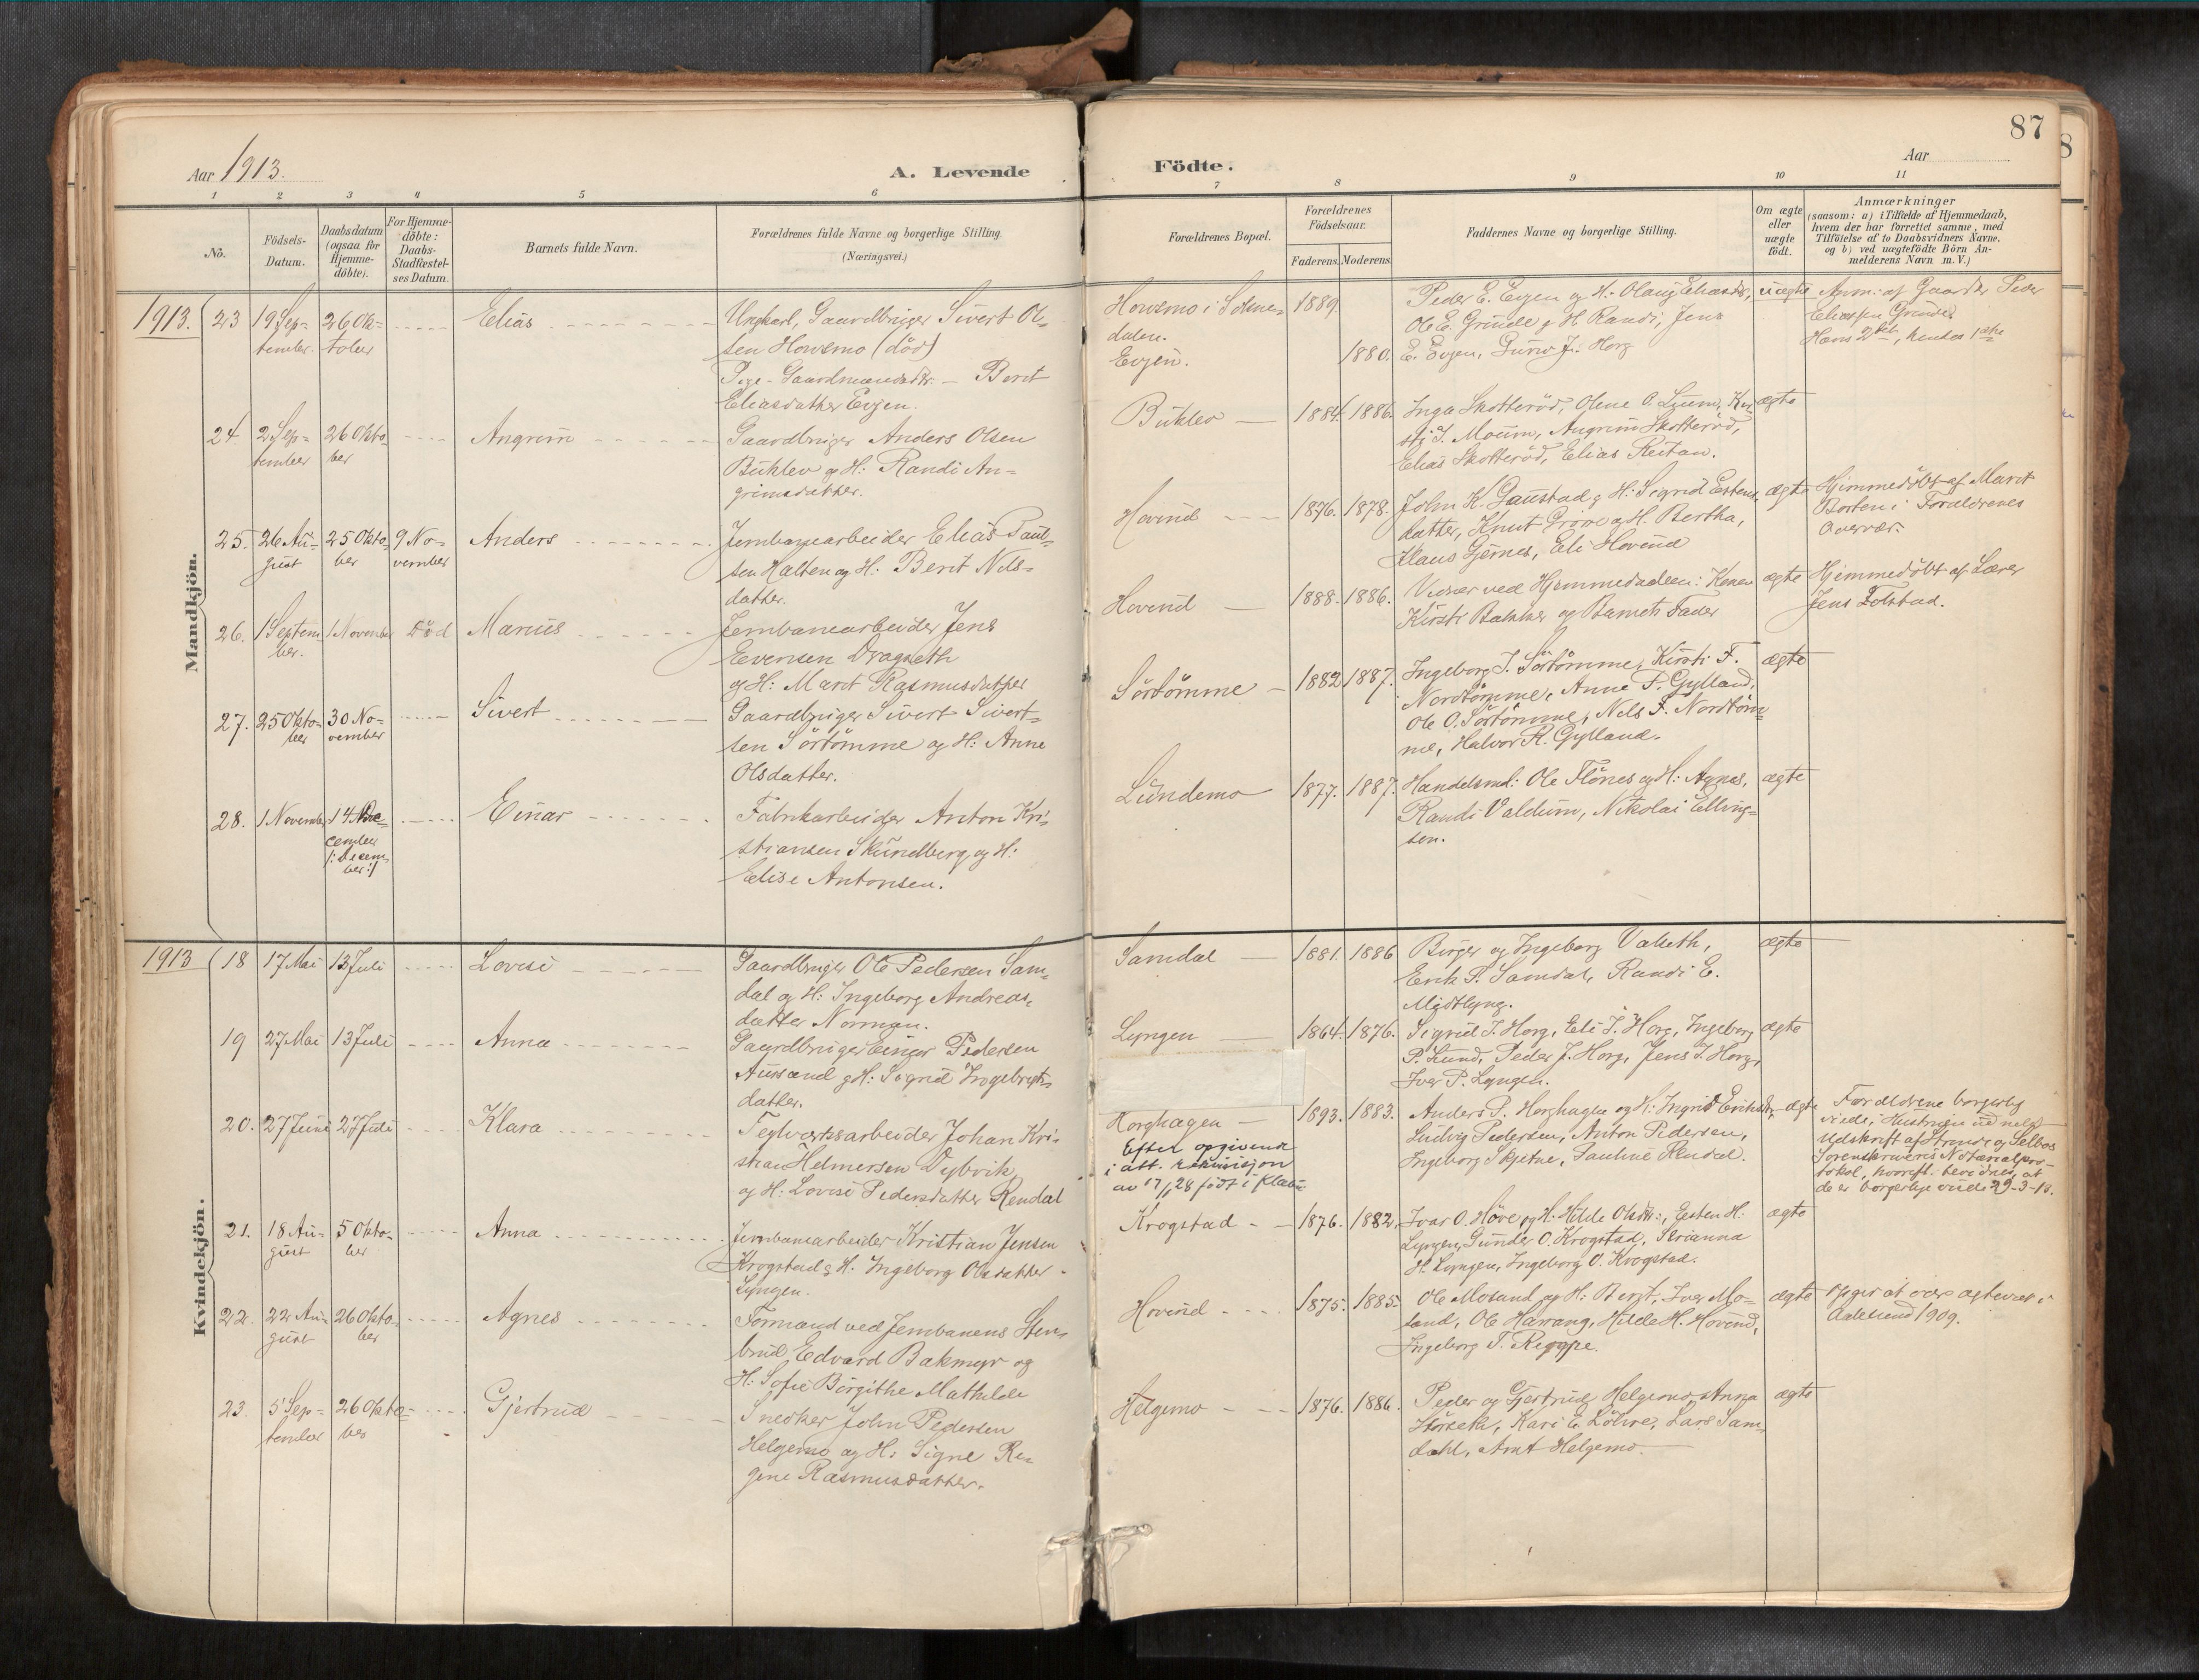 87
Aar 1913.
A. Levende
Födte.
Aar
1
2
3
4
5
6
7
8
9
10
11
No.
Födsels-
Datum.
Daabsdatum
(ogsaa for
Hjemme-
döbte).
For Hjemme-
döbte:
Daabs-
Stadfæstel-
ses Datum.
Barnets fulde Navn.
Forældrenes fulde Navne og borgerlige Stilling.
(Næringsvei.)
Forældrenes Bopæl.
Forældrenes
Födselsaar.
Faderens.
Moderens.
Faddernes Navne og borgerlige Stilling.
Om ægte
eller
uægte
födt.
Anmærkninger
(saasom: a) i Tilfælde af Hjemmedaab,
hvem der har forrettet samme, med
Tilföielse af to Daabsvidners Navne,
og b) ved uægtefödte Börn An-
melderens Navn m. V.)
Mandkjön.
1913.
23
19 Sep-
tember.
26 Ok-
tober
Elias
Ungkarl, Gaardbruger Sivert Ol-
sen Howsmo (død)
Pige - Gaardmandsdtr. - Berit
Eliasdatter Evjen.
Howsmo i Solnen-
dalen.
Evjen.
1889.
1880.
Peder E. Evjen og H: Olaug Eliasdtr,
Ole E. Grinde og H Randi, Jens
E. Evjen, Guru J. Horg
uægte
Anm: af Gaardbr Peder
Eliassen Grinde
Hans 2det, hendes 1ste
24.
2 Sep-
tember
26 Okto-
ber
Angrim
Gaardbruger Anders Olsen
Buklev og H: Randi An-
grimsdatter.
Buklev
1884.
1886.
Inga Skotterød, Oline O. Ljum, Kir-
sti J. Moum, Angrim Skotterød,
Elias Skotterød, Elias Reitan.
ægte
25.
26 Au-
gust
25 Okto-
ber
9 No-
vember
Anders
Jernbanearbeider Elias Paul-
sen Halten og H: Berit Nils-
datter.
Hovind
1876.
1878.
John K. Gaustad og H: Sigrid Estens-
datter, Knut Prome og H. Bertha,
Klaus Gjernes, Eli Hovind
ægte
Hjemmedøbt af Marit
Borten i Forældrenes
Overvær.
26.
1 Septem-
ber.
1 November
Død
Marius
Jernbanearbeider Jens
Evensen Dragseth
og H: Marit Rasmusdatter
Hovind
1888.
1886.
Vidner ved Hjemmedaaben: Konen
Kirsti Bakker og Barnets Fader
ægte
Hjemmedøbt af Lærer
Jens Folstad.
27.
25 Okto-
ber
30 No-
vember
Sivert
Gaardbruger Sivert Sivert-
sen Sörtömme og H: Anne
Olsdatter.
Sörtömme
1882
1887.
Ingeborg J. Sörtömme, Kirsti F.
Nordtömme, Anne P. Gylland,
Ole O. Sörtömme, Nils F. Nordtöm-
me, Halvor R. Gylland.
ægte
28.
1 November
14 De-
cember
/: Decem-
ber :/
Einar
Fabrikarbeider Anton Kri-
stiansen Skundberg og H:
Elise Antonsen.
Lundemo
1877.
1887.
Handelsmd: Ole Flönes og H: Agnes,
Randi Valdum, Nikolai Elling-
sen.
ægte
Kvindekjön.
1913
18
17 Mai
13 Juli
Lovise
Gaardbruger Ole Pedersen Sam-
dal og H: Ingeborg Andreas-
datter Norman.
Samdal
1881.
1886
Birger og Ingeborg Valseth,
Erik P. Samdal, Randi E.
Midtlyng.
ægte
19
27 Mai
13 Juli
Anna
Gaardbruger Einar Pedersen
Aunsand og H: Sigrid Ingebrigts-
datter.
Lyngen
1864.
1876.
Sigrid J. Horg, Eli J. Horg, Ingeborg
P. Lund, Peder J. Horg, Jens J. Horg,
Iver P. Lyngen.
ægte
20.
27 Juni
27 Juli
Klara
Teglverksarbeider Johan Kri-
stian Helmersen Dybvik
og H: Lovise Pedersdatter Rendal
Horghagen
Efter opgivende
i att. rekvisisjon
av 17/1 28 født i Klæbu
1893.
1883.
Anders P. Horghagen og H: Ingrid Eriksdtr,
Ludvig Pedersen, Anton Pedersen,
Ingeborg Skjetne, Pauline Rendal.
ægte
Forældrene borgerlig
viede, Hustruen udmeldt
Udskrift af Strinde og Selbus
Sorenskriveris Notarialpro-
tokol, hvorefter bevidnes, at
de er borgerlige viede 29-3-13.
21.
18 Au-
gust
5 Okto-
ber
Anna
Jernbanearbeider Kristian Jensen
Krogstad og H: Ingeborg Olsdatter
Lyngen.
Krogstad
1876.
1882.
Ivar O. Høve og H: Hilde Olsdtr:, Eesten H:
Lyngen, Gunder O. Krogstad, Serianna
H. Lyngen, Ingeborg O. Krogstad.
ægte
22.
22 Au-
gust
26 Okto-
ber
Agnes
Formand ved Jernbanens Sten-
brud Edvard Bakmyr og
H: Sofie Börgithe Mathilde
Hovind
1875.
1885.
Ole Mosand og H: Berit, Iver Mo-
sand, Ole Harrang, Hilde H. Hovind,
Ingeborg T. Reppe.
ægte
opgir at være ægteviet i
Aalesund 1909.
23.
5 Sep-
tember
26 Okto-
ber
Gjertrud
Snedker John Pedersen
Helgemo og H: Signe Re-
gine Rasmusdatter.
Helgemo
1876.
1886.
Peder og Gjertrud Helgemo, Anna
Störseth, Kari E. Löhre, Lars Sam-
dahl, Arnt Helgemo.
ægte